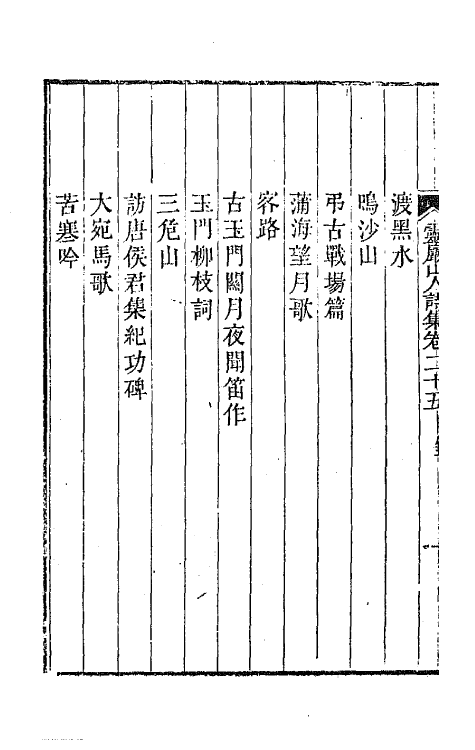 靈巖山人詩集卷二十五 目錄 一
渡黑水
鳴沙山
弔古戰場篇
蒲海望月歌
客路
古玉門關月夜聞笛作
玉門柳枝詞
三危山
訪唐侯君集紀功碑
大宛馬歌
苦寒吟